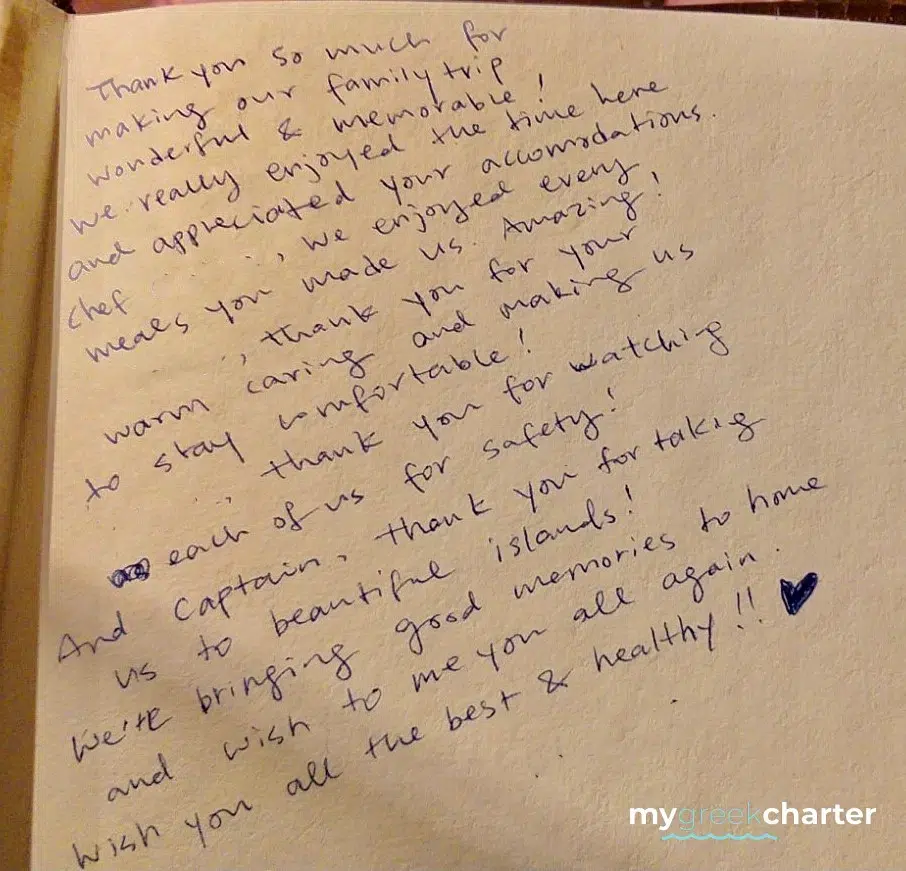 Thank you so much for
making our family trip
wonderful & memorable!
We really enjoyed the time here
and appreciated your accomodations.
Chef , we enjoyed every
meals you made us. Amazing!
, thank you for your
warm caring and making us
to stay comfortable!
, thank you for watching
each of us for safety!
And Captain, thank you for takig
us to beautiful islands!
We're bringing good memories to home
and wish to me you all again.
Wish you all the best & healthy!!
mygreekcharter